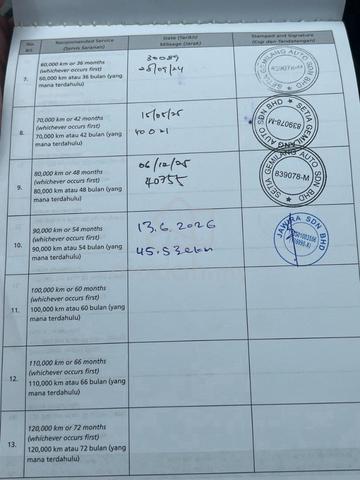 No.
Recommended Service
(Servis Saranan)
Date (Tarikh)
Mileage (Jarak)
Stamped and Signature
(Cop dan Tandatangan)
7.
60,000 km or 36 months
(whichever occurs first)
60,000 km atau 36 bulan (yang
mana terdahulu)
30089
SETIA GEMILANG AUTO SDN BHD
839078-M
8.
70,000 km or 42 months
(whichever occurs first)
70,000 km atau 42 bulan (yang
mana terdahulu)
15/05/25
SETIA GEMILANG AUTO SDN BHD
839078-M
9.
80,000 km or 48 months
(whichever occurs first)
80,000 km atau 48 bulan (yang
mana terdahulu)
06/12/25
40755
SETIA GEMILANG AUTO SDN BHD
839078-M
10.
90,000 km or 54 months
(whichever occurs first)
90,000 km atau 54 bulan (yang
mana terdahulu)
13.6.2026
JAWIRA SDN BHD
11.
100,000 km or 60 months
(whichever occurs first)
100,000 km atau 60 bulan (yang
mana terdahulu)
12.
110,000 km or 66 months
(whichever occurs first)
110,000 km atau 66 bulan (yang
mana terdahulu)
13.
120,000 km or 72 months
(whichever occurs first)
120,000 km atau 72 bulan (yang
mana terdahulu)